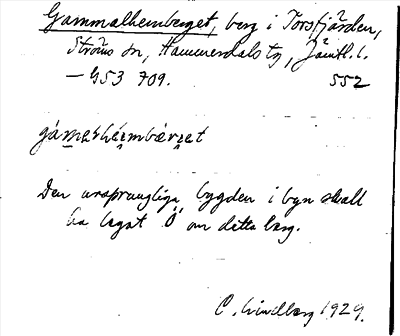 Gammalhemberget, berg i Torsfjärden,
Ströms sn, Hammerdals tg, Jämtl. l.
— G53 709. 552
Den ursprungliga bygden i byn skall
ha legat Ö om detta berg.
C. Lindberg 1929.